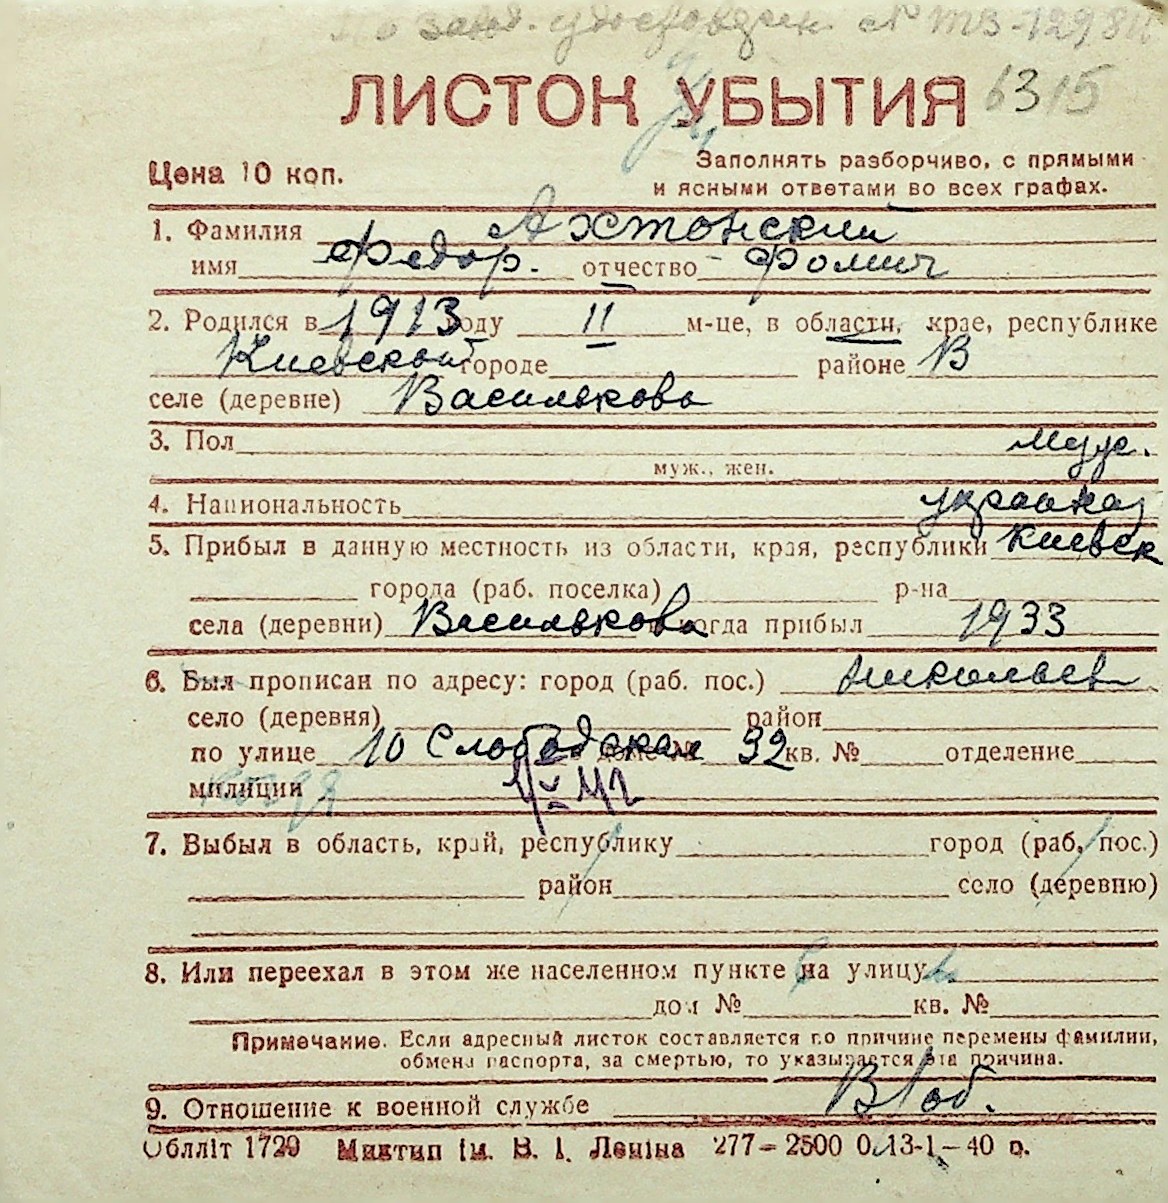 6315
ЛИСТОК УБЫТИЯ
Цена 10 коп.
Заполнять разборчиво, с прямыми
и ясными ответами во всех графах.
1. Фамилия Ахтонский
имя Федор. отчество Фомич
2. Родился в 1913 году II м-це, в области, крае, республике
Киевской городе районе В
селе (деревне) Василькова
3. Пол муж.
муж., жен.
4. Национальность
5. Прибыл в данную местность из области, края, республики Киевск
города (раб. поселка) р-на
села (деревни) Василькова и когда прибыл 1933
6. Был прописан по адресу: город (раб. пос.) Николаев
село (деревня) район
по улице 10 Слободская дом № 32 кв. № отделение
милиции
7. Выбыл в область, край, республику город (раб, пос.)
район село (деревню)
8. Или переехал в этом же населенном пункте на улицу
дом № кв. №
Примечание. Если адресный листок составляется по причине перемены фамилии,
обмена паспорта, за смертью, то указывается эта причина.
9. Отношение к военной службе В/об.
Облліт 1729 Миктип ім. В. І. Леніна 277-2500 0.13-1-40 р.